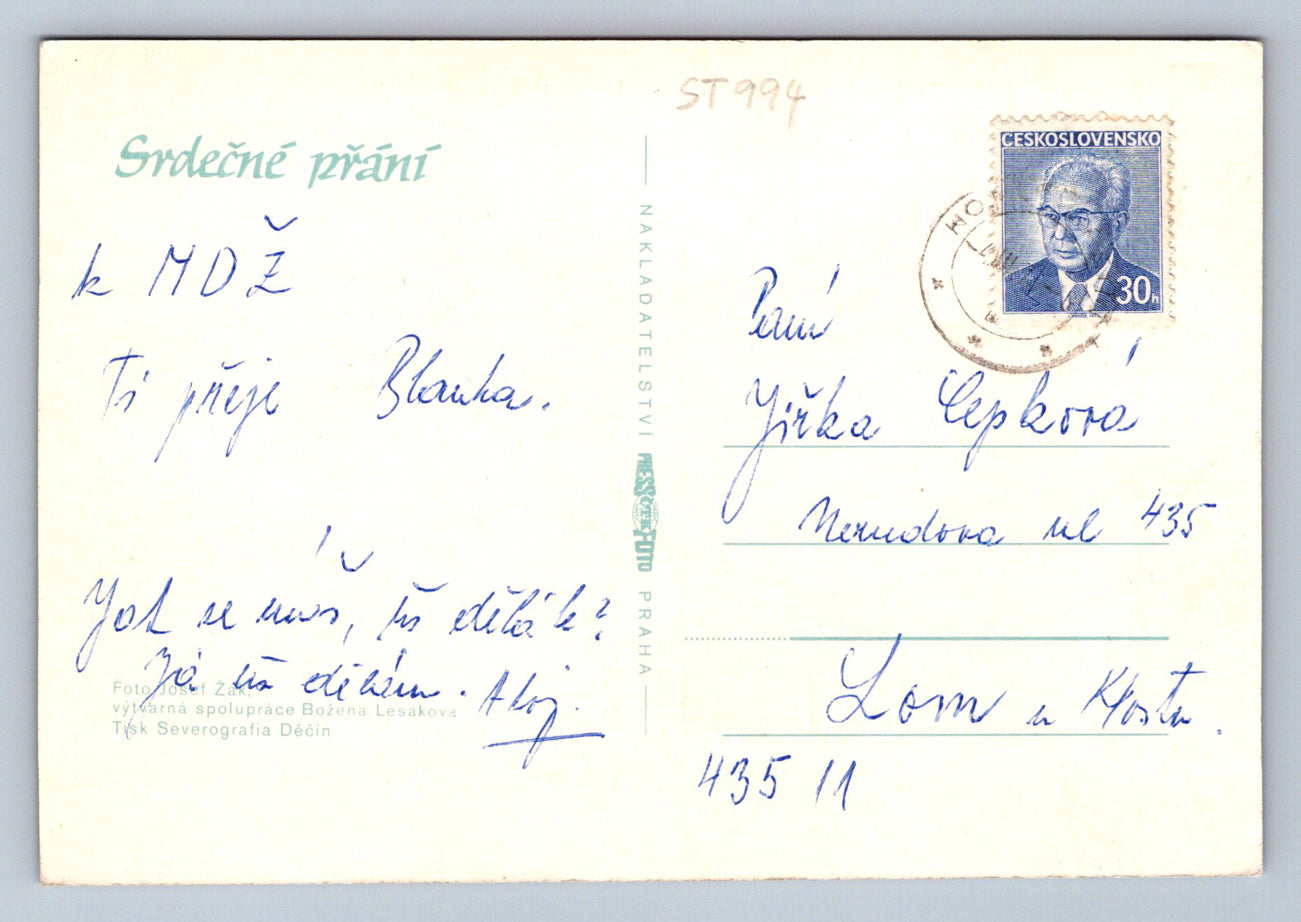 ST994
Srdečné přání
k MDŽ
Ti přeje Blanka.
Jak se máš, už děláš?
Já už dělám. Ahoj.
Foto Josef Žák,
výtvarná spolupráce Božena Lesáková
Tisk Severografia Děčín
NAKLADATELSTVÍ PRESSFOTO PRAHA
ČESKOSLOVENSKO
30h
Paní
Jiřka Cepková
Nerudova ul 435
Lom u Mostu.
435 11